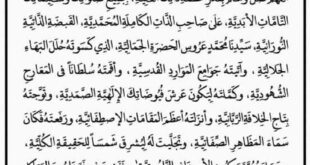 التَّامَّاتِ الأَبَدِيَّةِ، عَلَى صَاحِبِ الذَّاتِ الكَامِلَةِ المُحَمَّدِيَّةِ، القَبْضَةِ الذَّاتِيَّةِ
النُّورَانِيَّةِ، سَيِّدِنَا مُحَمَّدٍ عَرُوسِ الحَضْرَةِ الجَمَالِيَّةِ، الَّذِي كَسَوْتَهُ حُلَلَ البَهَاءِ
الجَلَالِيَّةِ، وَآتَيْتَهُ جَوَامِعَ المَوَارِدِ القُدْسِيَّةِ، وَأَقَمْتَهُ سُلْطَاناً فِي مَعَارِجِ
الشُّهُودِيَّةِ، وَكَمَّلْتَهُ لِيَكُونَ عَرْشَ فُيُوضَاتِكَ الإِلَهِيَّةِ الصَّمَدِيَّةِ، وَتَوَّجْتَهُ
بِتَاجِ الخِلَافَةِ الرَّبَّانِيَّةِ، وَأَنْزَلْتَهُ أَعْظَمَ المَقَامَاتِ الإِصْطِفَائِيَّةِ، وَرَفَعْتَهُ
سَمَاءَ المَظَاهِرِ الصِّفَاتِيَّةِ، وَتَجَلَّيْتَ لَهُ لِيُشْرِقَ شَمْساً لِلْحَقِيقَةِ الكُلِّيَّةِ،